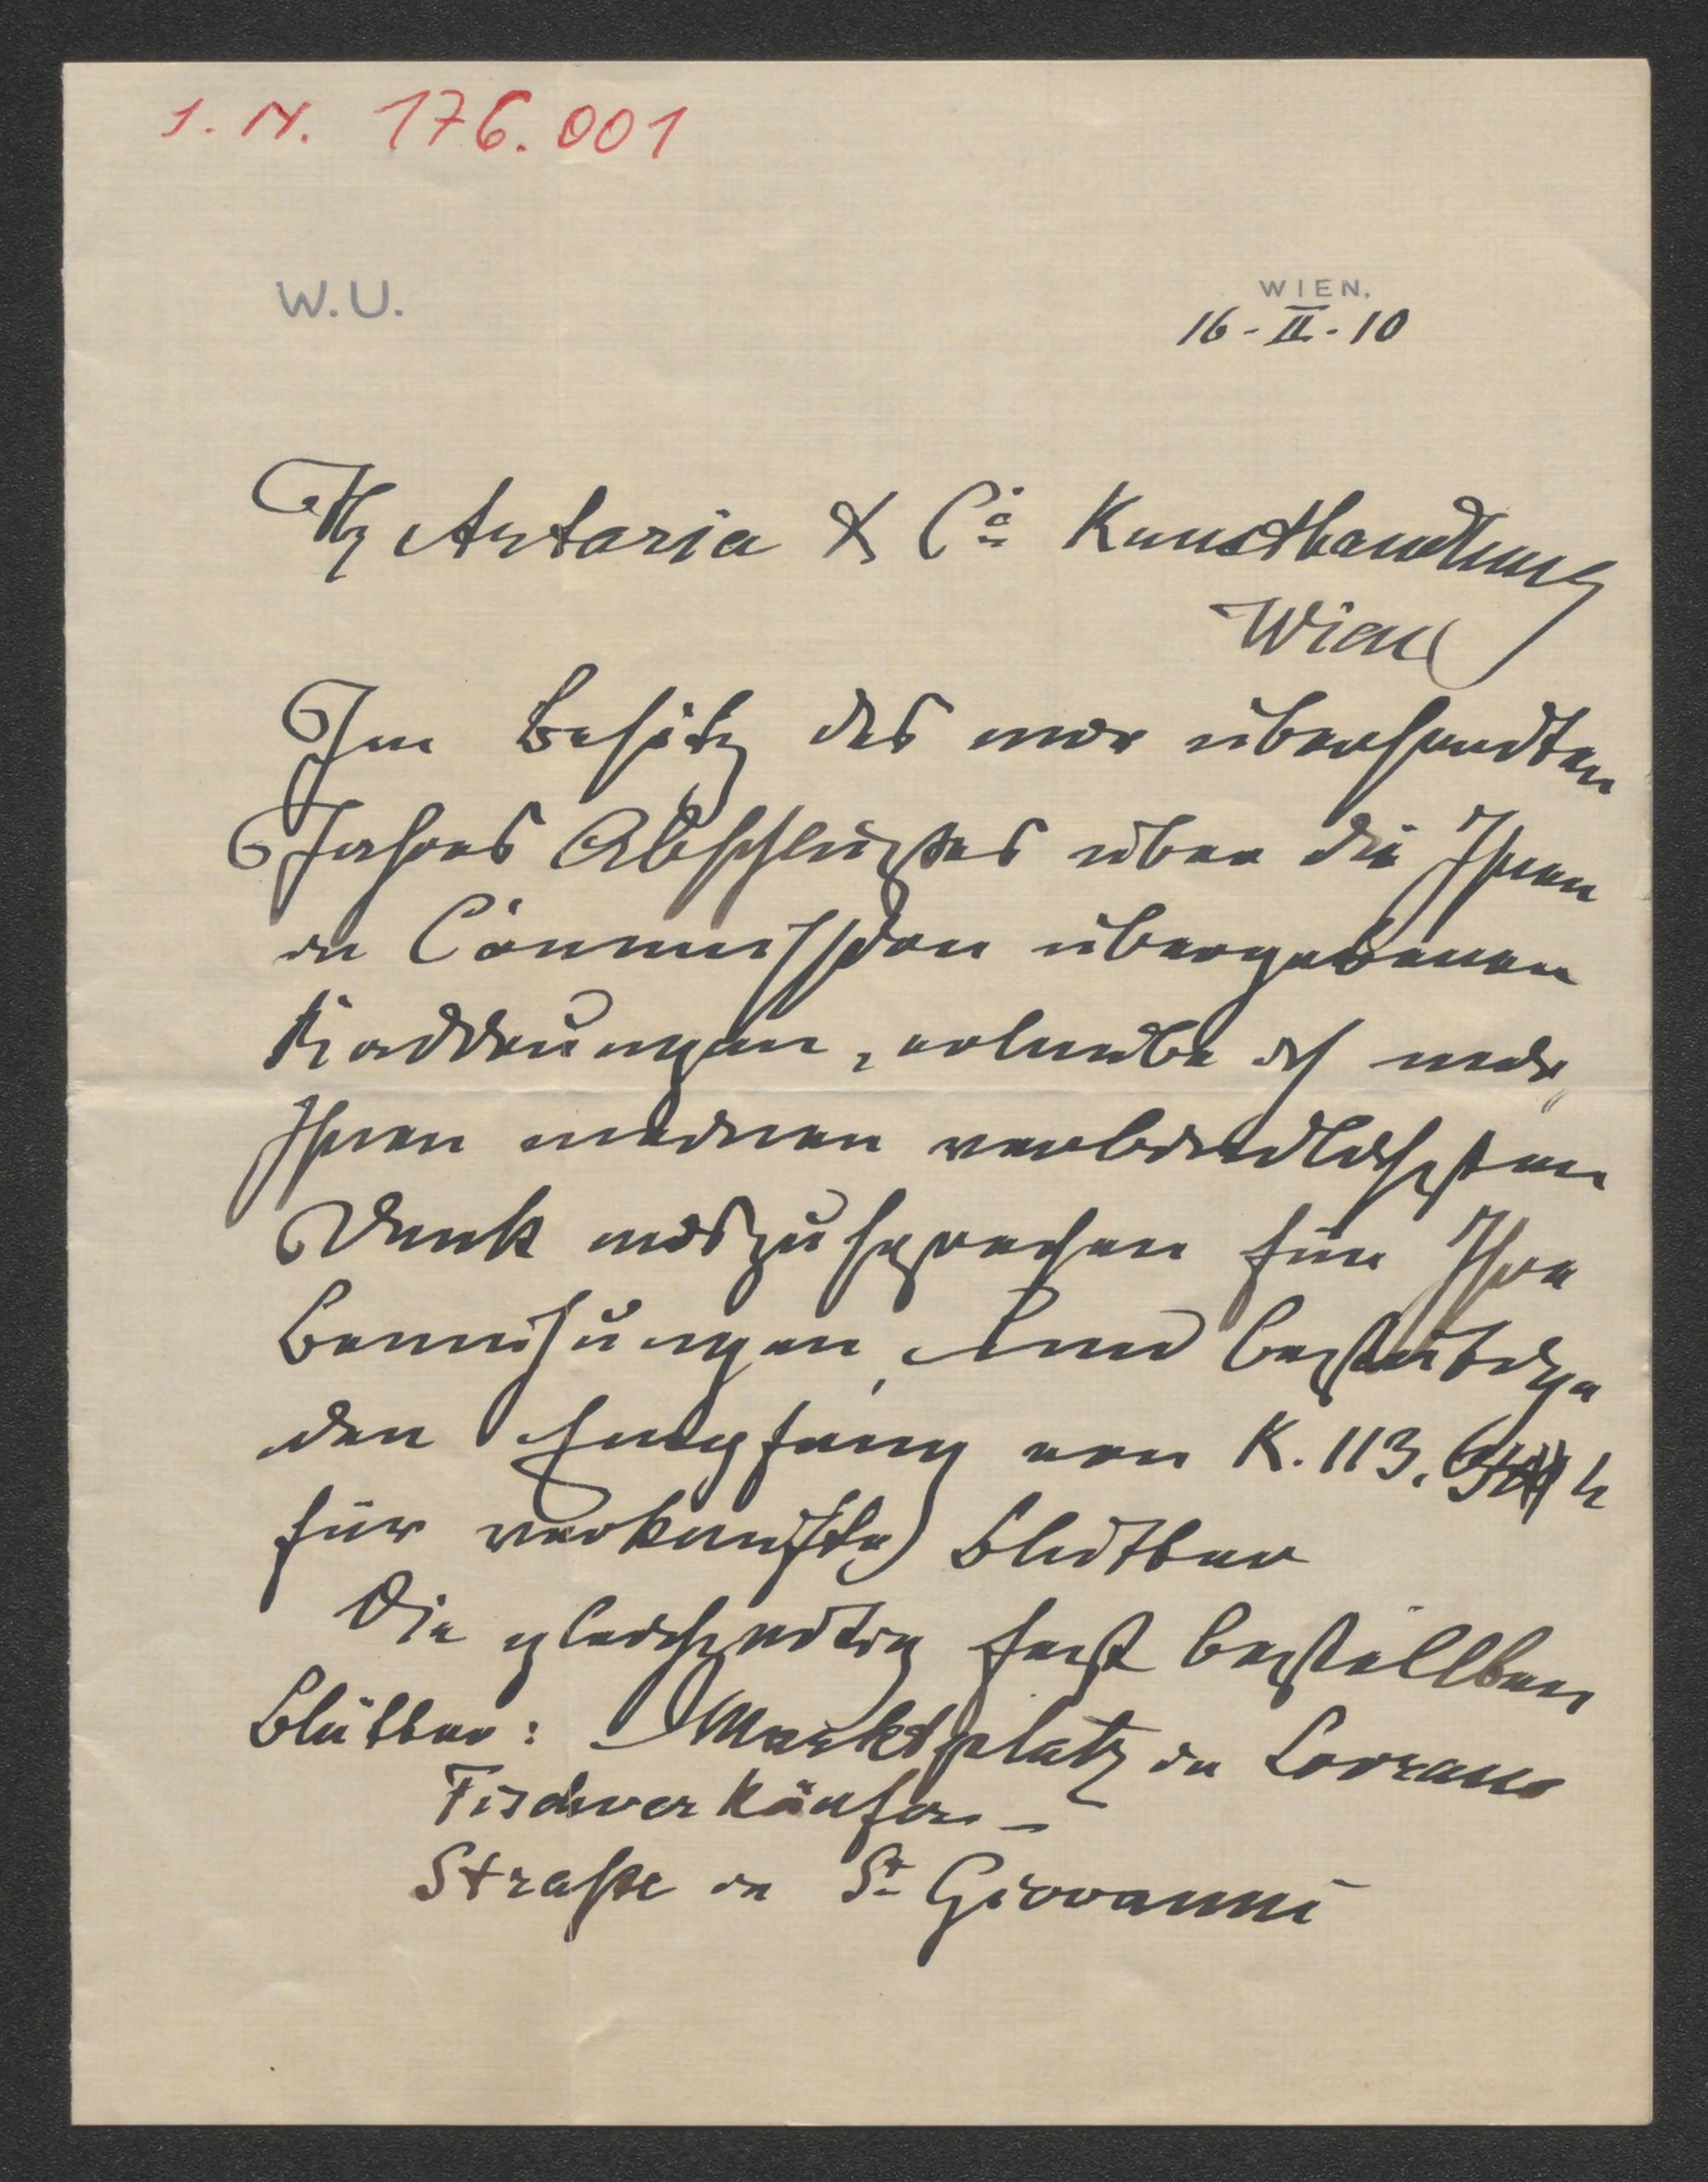 I. N. 176.001
W. U.
WIEN,
16-II-10
Artaria & Co Kunsthandlung
Wien
Im Besitz des mir übersandten
Jahres Abschlußes über die Ihnen
in Commission übergebenen
Radirungen, erlaube ich mir,
Ihnen meinen verbindlichsten
Dank auszusprechen für Ihre
Bemühungen, und bestätige
den Empfang von K. 113. h
für verkaufte Blätter
Die gleichzeitig fest bestellten
Blätter: Marktplatz in Lovrano
Fischverkäufer -
Straße in St Giovanni